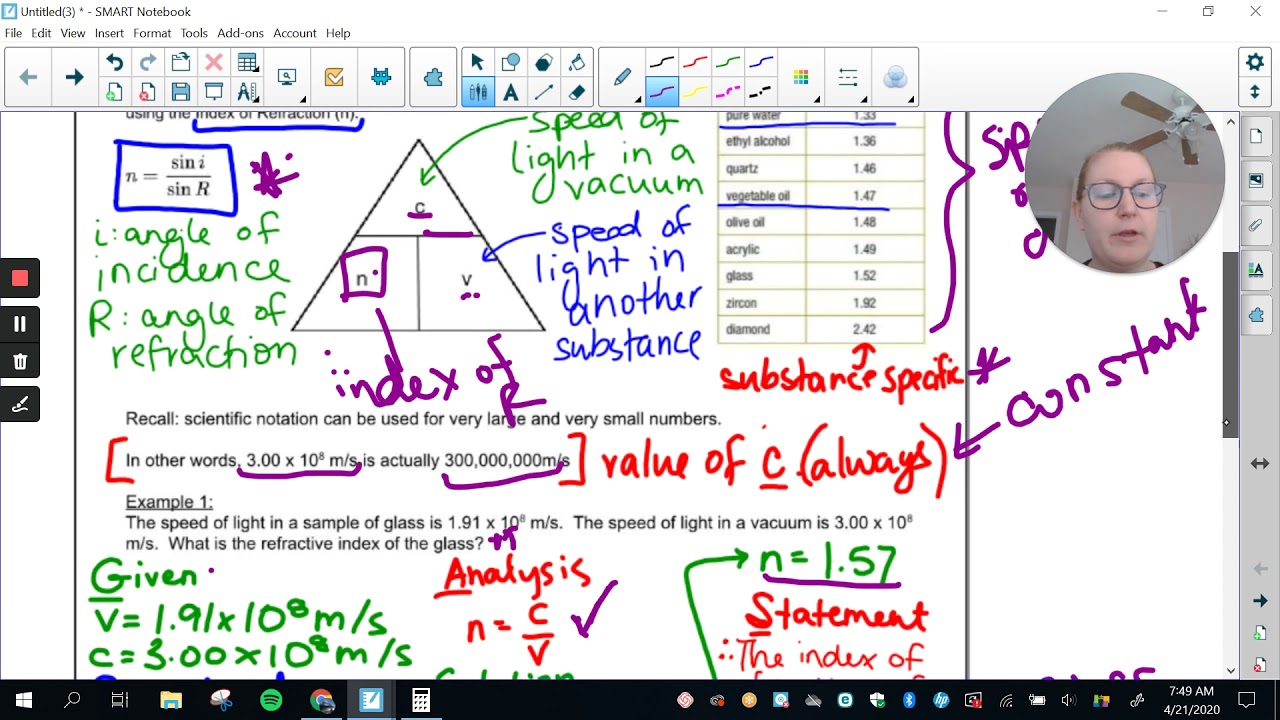 Untitled(3) * - SMART Notebook
File Edit View Insert Format Tools Add-ons Account Help
using the Index of Refraction (n).
n = sin i / sin R
i: angle of
incidence
R: angle of
refraction
c
n
v
index of
R
speed of
light in a
vacuum
speed of
light in
another
substance
pure water 1.33
ethyl alcohol 1.36
quartz 1.46
vegetable oil 1.47
olive oil 1.48
acrylic 1.49
glass 1.52
zircon 1.92
diamond 2.42
substance specific
constant
Recall: scientific notation can be used for very large and very small numbers.
[In other words, 3.00 x 10⁸ m/s is actually 300,000,000m/s] value of c (always)
Example 1:
The speed of light in a sample of glass is 1.91 x 10⁸ m/s. The speed of light in a vacuum is 3.00 x 10⁸
m/s. What is the refractive index of the glass?
Given
V = 1.91 x 10⁸ m/s
c = 3.00 x 10⁸ m/s
Analysis
n = c / v
n = 1.57
Statement
∴ The index of
7:49 AM
4/21/2020